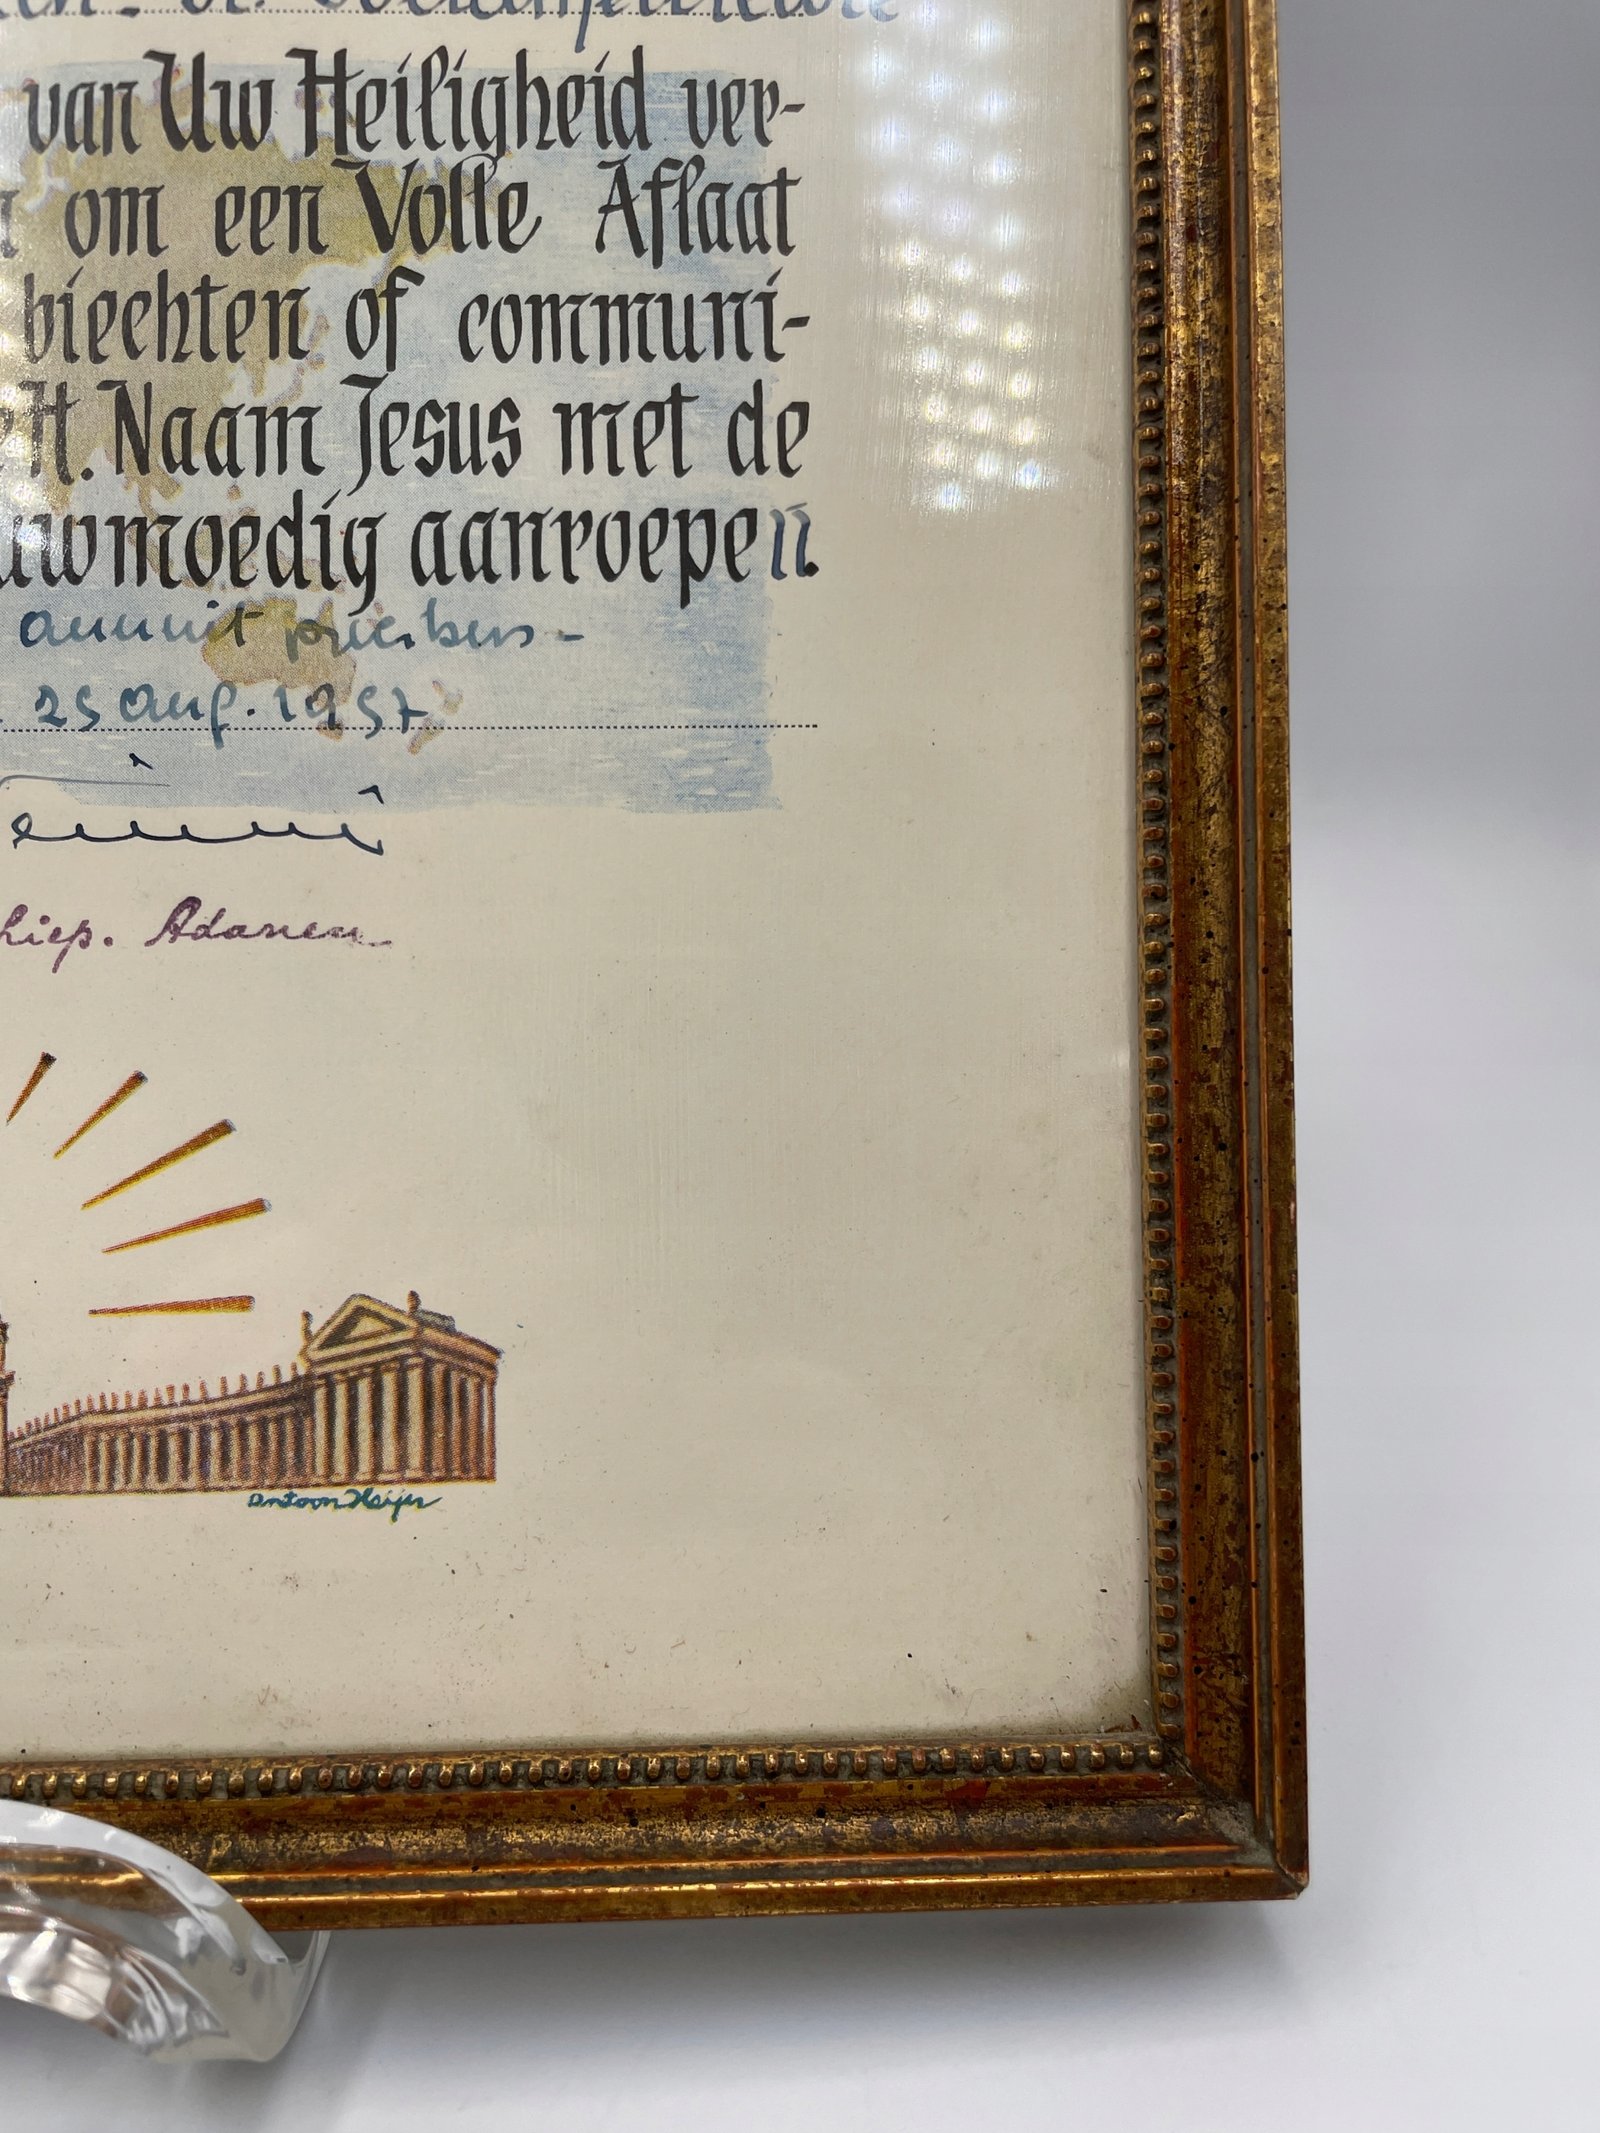 van Uw Heiligheid ver-
om een Volle Aflaat
biechten of communi-
H. Naam Jesus met de
uwmoedig aanroepen.
annuit precibus -
25 Aug. 1957
hiep. Adanen
Antoon Heijer